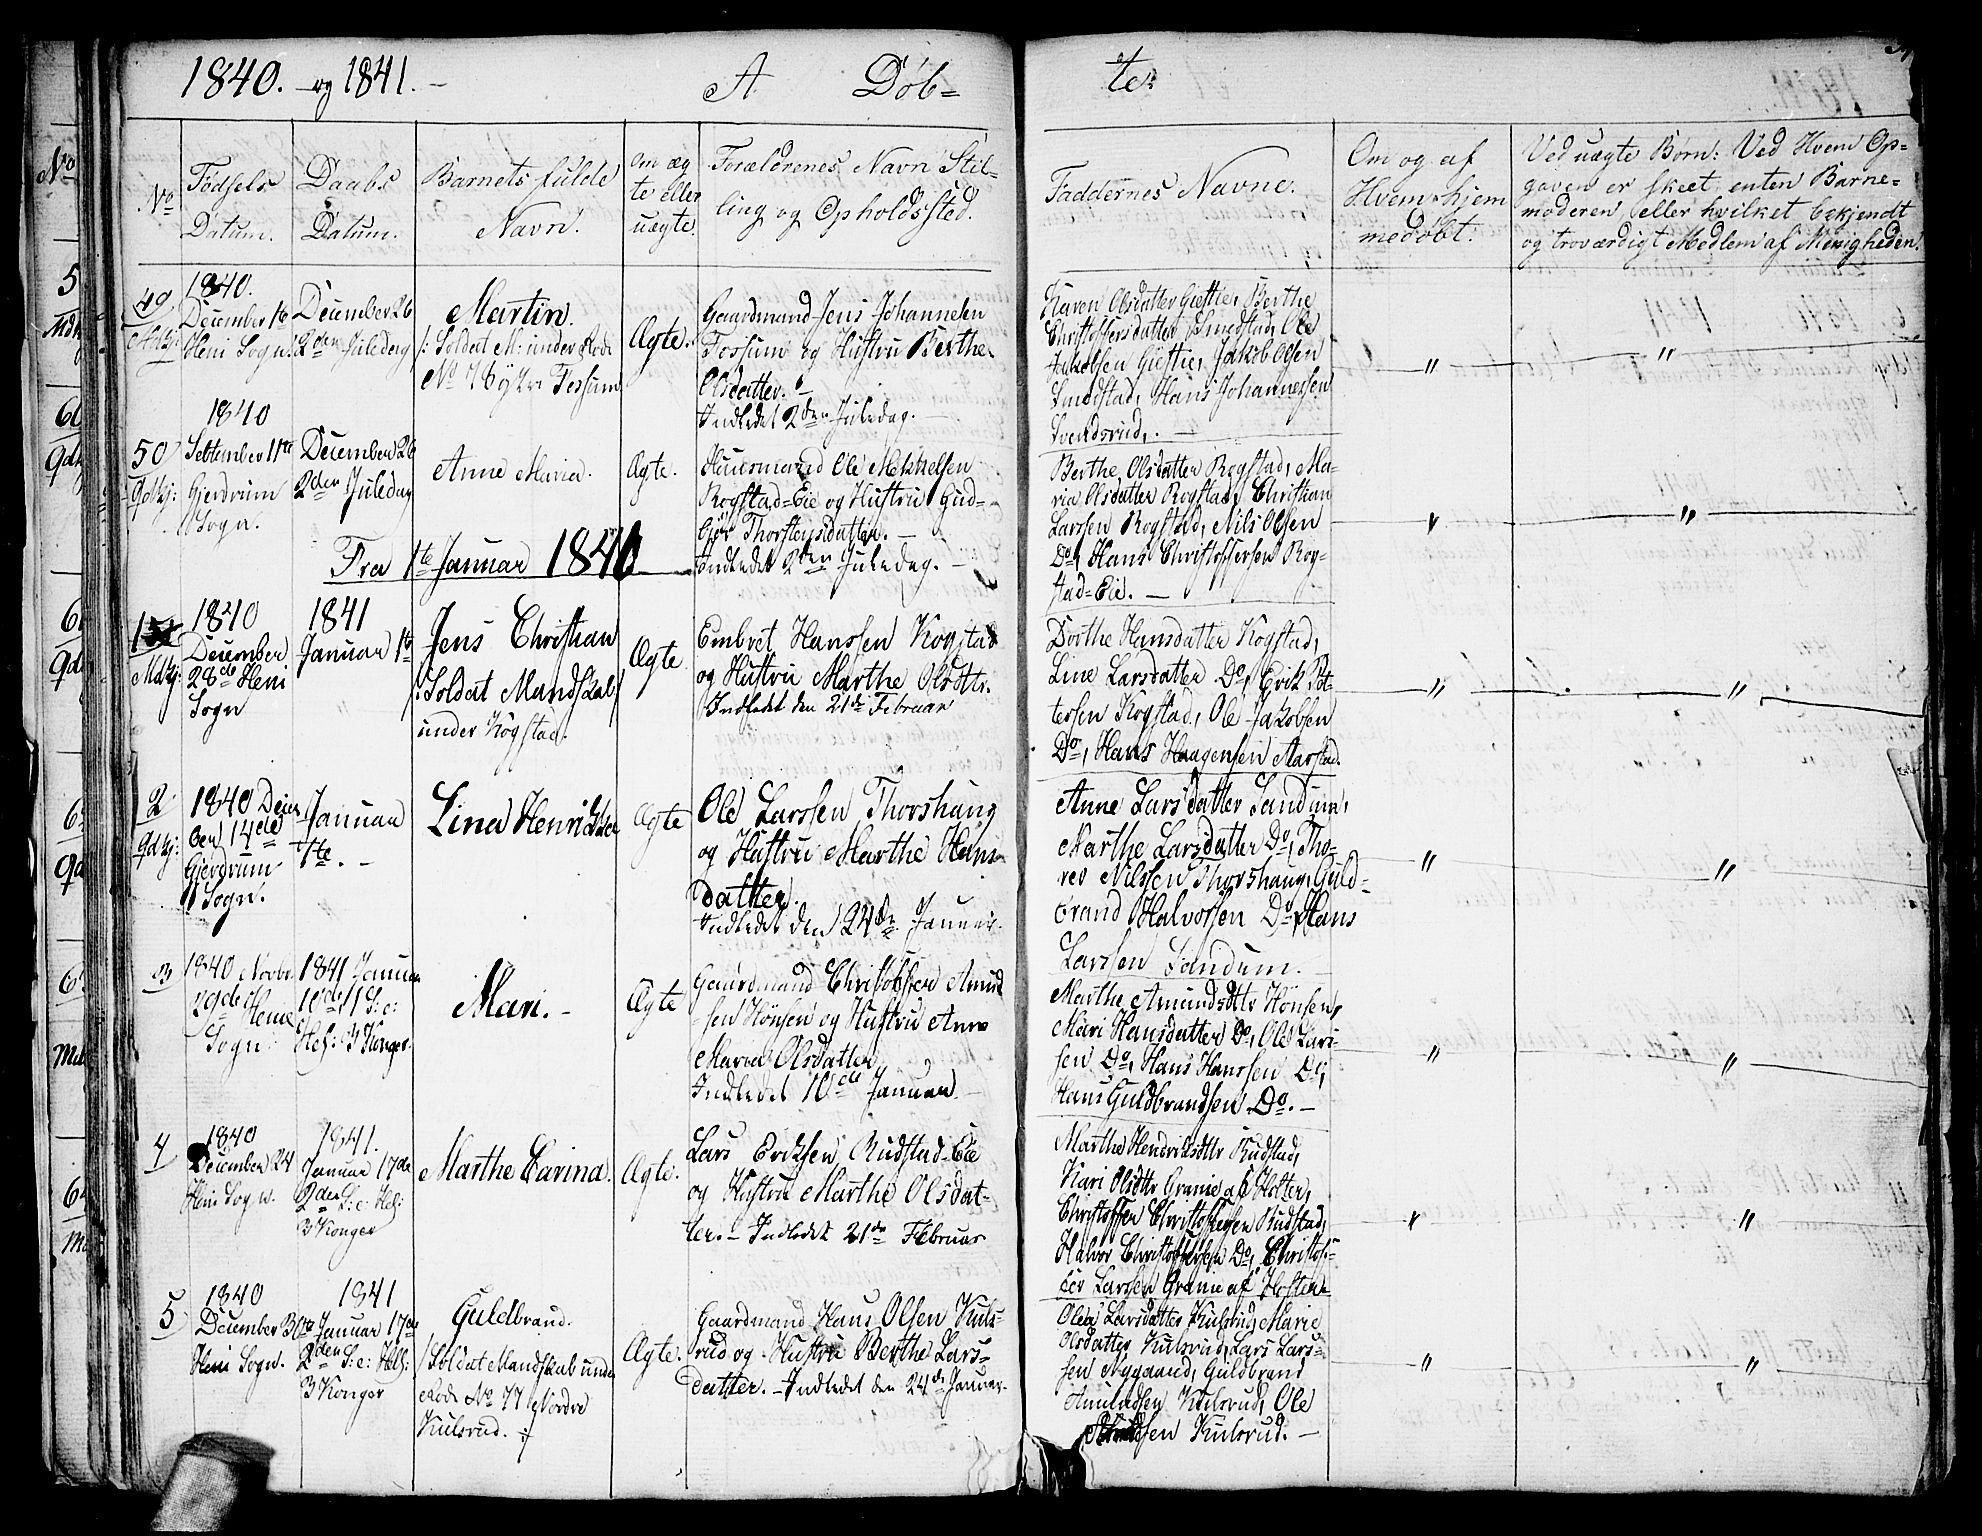 1840. og 1841. –
A Døb=
te.
No
Fødsels
Datum.
Daabs
Datum.
Barnets fulde
Navn.
om æg
te eller
uægte.
Forældrenes Navn Stil=
ling og Opholdssted.
Faddernes Navne.
Om og af
Hvem hjem
medøbt.
Ved uægte Børn: Ved Hvem Op=
gaven er skeet, enten Barne=
moderen, eller hvilket bekjendt
og troværdigt Medlem af Menigheden.
49
1840.
December 1te
Heni Sogn.
December 26
2den Juledag
Martin.
/: Soldat M: under Rode
No 76 Fossum
Ægte.
Gaardmand Jens Johannesen
Fossum og Hustru Berthe
Olsdatter. –
Indledet 2den Juledag. –
Karen Olsdatter Gjestie, Berthe
Christoffersdatter Smedstad, Ole
Jakobsen Gjestie, Jakob Olsen
Smedstad, Hans Johannessen
Svendsrud. –
"
"
50
Gdkj:
1840
September 11te
Gjerdrum
Sogn.
December 26
2den Juledag
Anne Maria.
Ægte.
Huusmand Ole Mikkelsen
Rogstad=Eie og Hustru Gud=
bjør Thorstensdatter. –
Indledet 2den Juledag. –
Berthe Olsdatter Rogstad, Ma=
ria Olsdatter Rogstad, Christian
Larssen Rogstad, Nils Olsen
Do, Hans Christoffersen Rog=
stad=Eie. –
"
"
Fra 1te Januar 1840
1
Mdkj:
1840
December
28de Heni
Sogn
1841
Januar 1te
Jens Christian
/: Soldat Mandskab
under Kogstad.
Ægte
Embret Hanssen Kogstad
og Hustru Marthe Olsdttr.
Indledet den 21de Februar
Dorthe Hansdatter Kogstad,
Line Larsdatter Do, Erik Pet=
tersen Kogstad, Ole Jakobsen
Do, Hans Haagensen Aarstad.
"
"
2
Gdkj:
1840 Decem
ber 14de
Gjerdrum
Sogn.
Januar
1te. –
Lina Henrikke
Ægte
Ole Larssen Thorshaug
og Hustru Marthe Hans
datter.
Indledet den 24de Januar.
Anne Larsdatter Sandum,
Marthe Larsdatter Do, Tho=
res Nilssen Thorshaug, Guld=
brand Halvorsen Do, Hans
Larssen Sandum. –
"
"
3
1840 Novbr
19de Heni
Sogn
1841 Januar
10de 1 S: e:
Hel: 3 Konger.
Mari. –
Ægte
Gaardmand Christoffer Amund
sen Hønsen og Hustru Anne
Maria Olsdatter
Indledet 10de Januar –
Marthe Amundsdttr Hønsen,
Mari Hansdatter Do, Ole Lars=
sen Do, Hans Hanssen Do,
Hans Guldbrandsen Do. –
"
"
4
1840
December 24
Heni Sogn.
1841.
Januar 17de
2den S: e: Hel:
3 Konger
Marthe Carina.
Ægte.
Lars Eriksen Rudstad=Eie
og Hustru Marthe Olsdat=
ter. – Indledet 21de Februar
Marthe Hendriksdttr Rudstad,
Kari Olsdttr Granie af Holter,
Christoffer Christoffersen Rudstad,
Halvor Christoffersen Do, Christof=
fer Larssen Granie af Holter
"
"
5
1840
December 30te
Heni Sogn.
1841
Januar 17de
2den S: e: Hel:
3 Konger
Guldbrand.
/: Soldat Mandskab under
Rode No 77 Nordre
Kulsrud. :/
Ægte.
Gaardmand Hans Olsen Kuls=
rud og Hustru Berthe Lars=
datter. – Indledet den 24de Januar.
Olea Larsdatter Kulsrud, Marie
Olsdatter Kulsrud, Lars Lars=
sen Nygaard, Guldbrand
Amundsen Kulsrud, Ole
Kulsrud. –
"
"